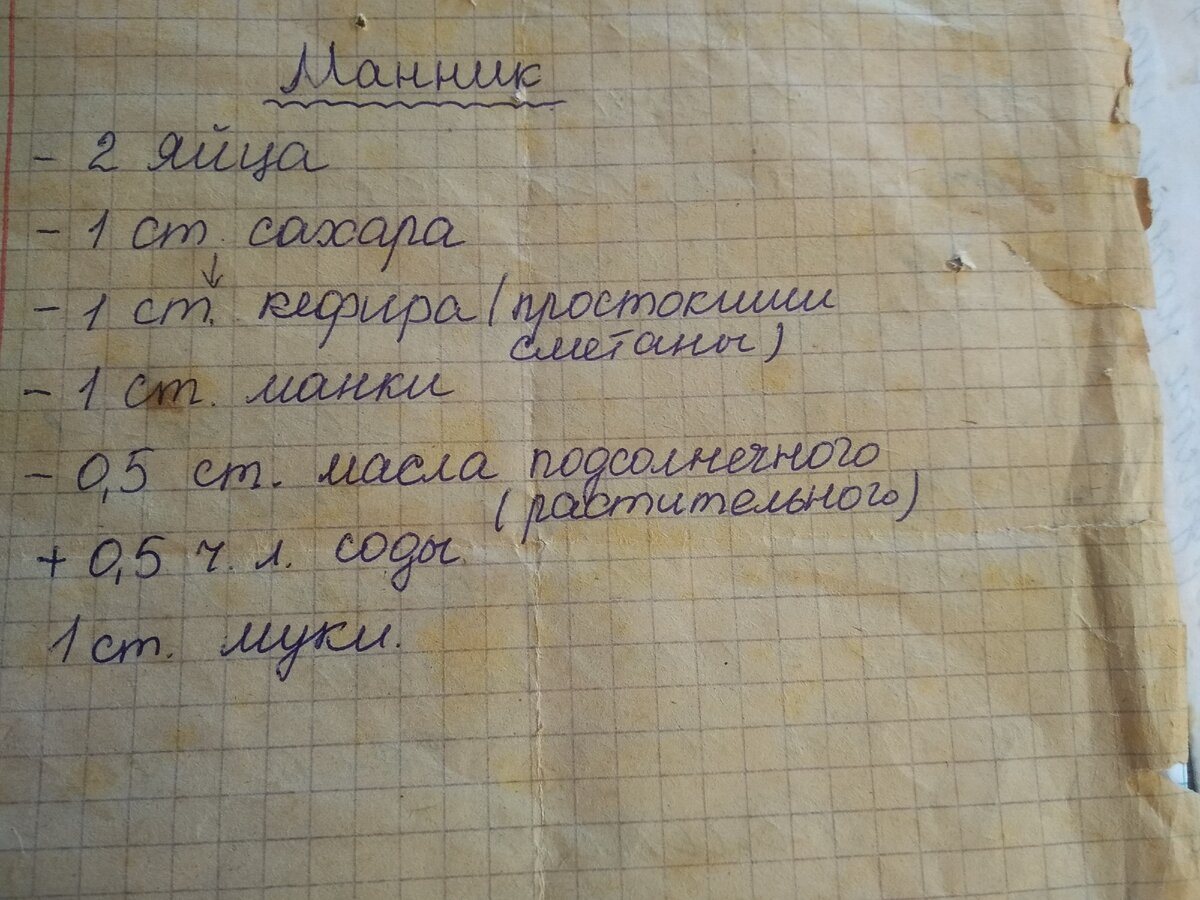 Манник
- 2 яйца
- 1 ст. сахара
↓
- 1 ст. кефира (простокиши
сметаны)
- 1 ст. манки
- 0,5 ст. масла подсолнечного
(растительного)
+ 0,5 ч. л. соды
1 ст. муки.